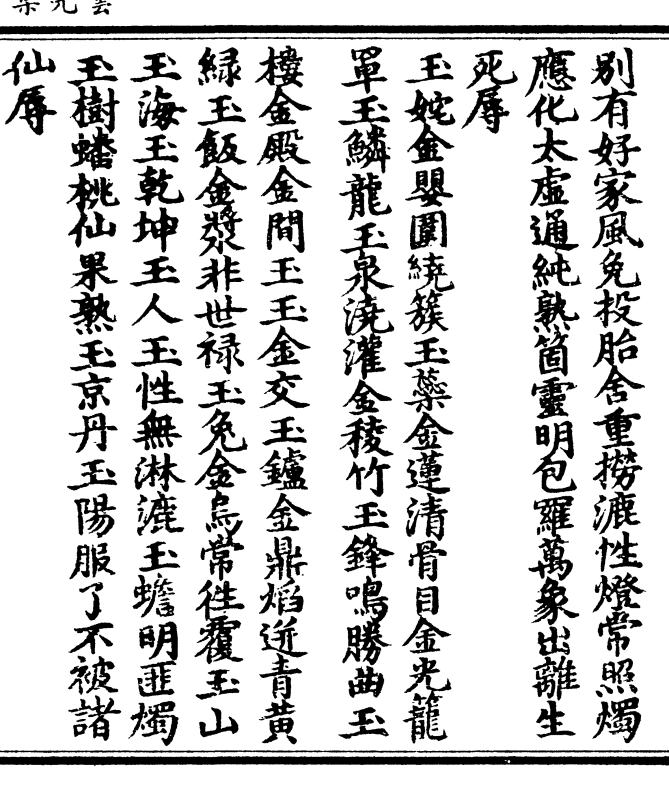 別有好家風免投胎舍重撈漉性燈常照燭
應化太虛通純熟箇靈明包羅萬象出離生
死辱
玉姹金嬰圍繞簇玉蘂金蓮清骨目金光籠
罩玉鱗龍玉泉澆灌金稜竹玉鋒鳴勝曲玉
樓金殿金間玉玉金交玉鑪金鼎焰迸青黃
緑玉飯金漿非世禄玉兔金烏常徃覆玉山
玉海玉乾坤玉人玉性無淋漉玉蟾明匪燭
玉樹蟠桃仙果熟玉京丹玉陽服了不被諸
仙辱